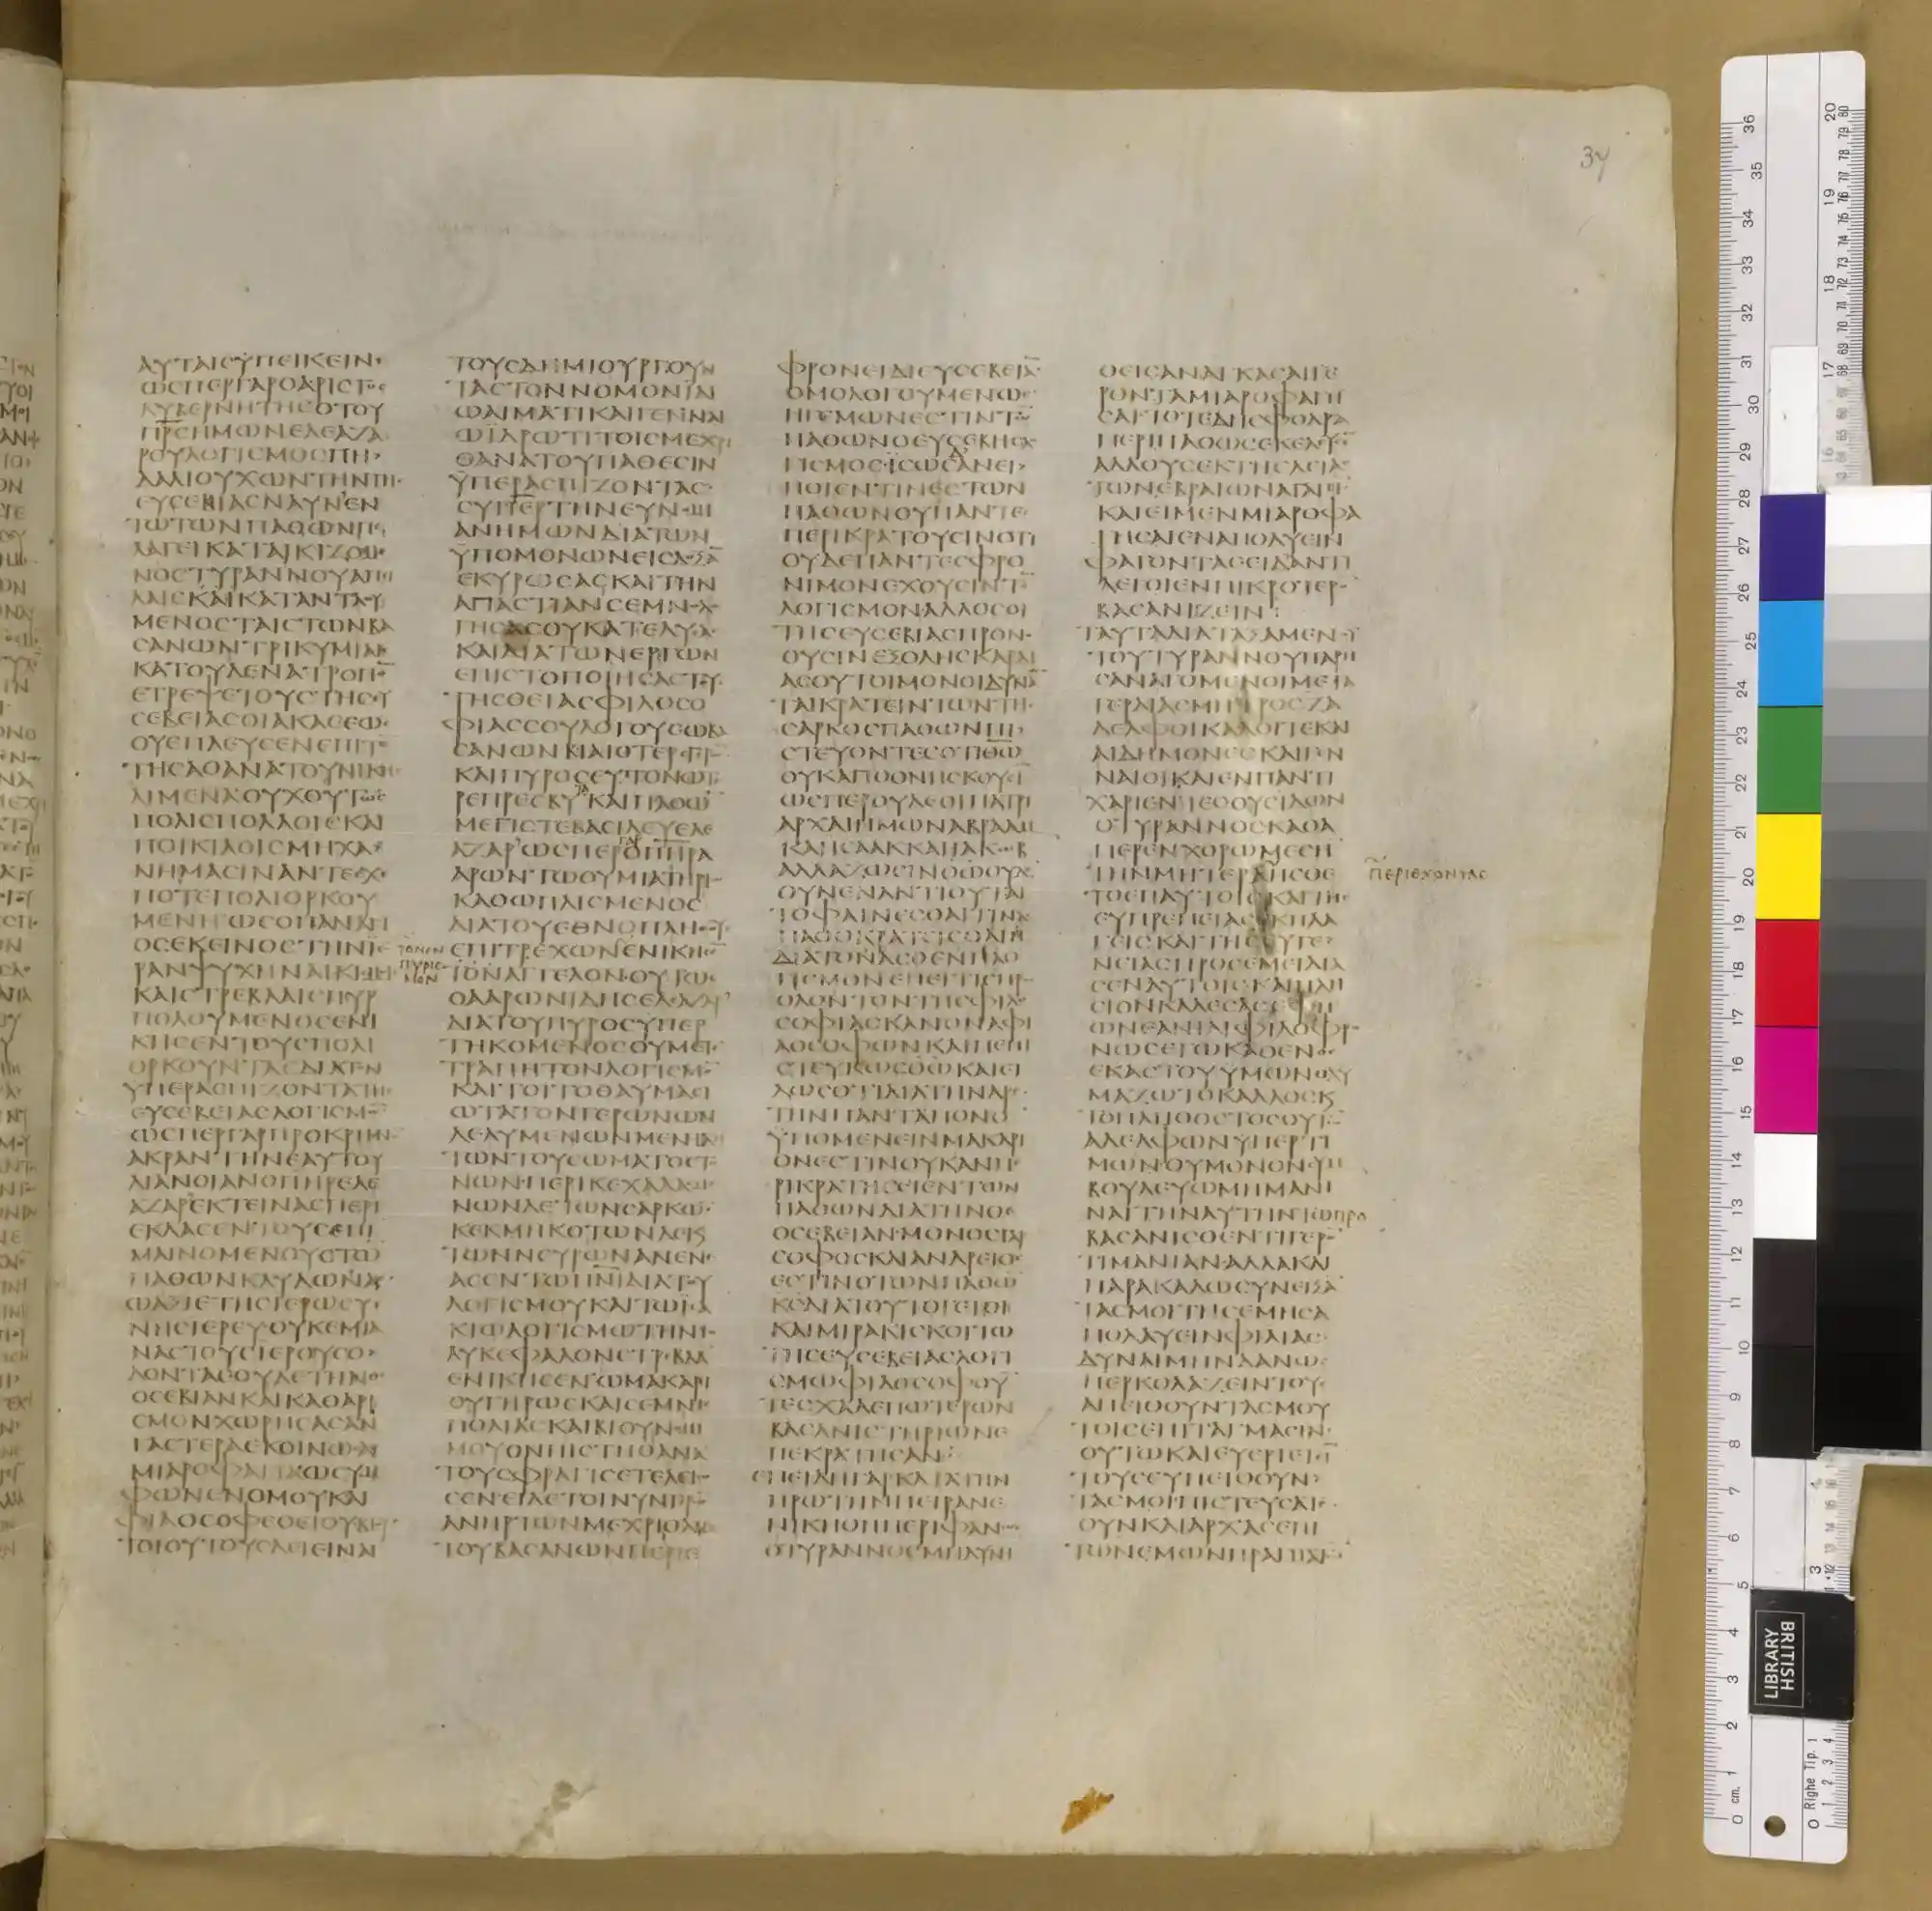 ΑΥΤΑΙCΥΠΕΙΚΕΙΝ·
ΩCΠΕΡΓΑΡΟΑΡΙCΤΟC
ΚΥΒΕΡΝΗΤΗCΟΤΟΥ
ΠΡ̅CΗΜΩΝΕΛΕΑΖΑ
ΡΟΥΛΟΓΙCΜΟCΠΗ
ΔΑΛΙΟΥΧΩΝΤΗΝΤΗC
ΕΥCΕΒΙΑCΝΑΥΝΕΝ
ΤΩΤΩΝΠΑΘΩΝΠΕ
ΛΑΓΕΙΚΑΤΑΙΚΙΖΟΜΕ
ΝΟCΤΥΡΑΝΝΟΥΑΠΙ
ΛΑΙCΚΑΙΚΑΤΑΝΤΛΟΥ
ΜΕΝΟCΤΑΙCΤΩΝΒΑ
CΑΝΩΝΤΡΙΚΥΜΙΑΙC
ΚΑΤΟΥΔΕΝΑΤΡΟΠΟ̅
ΕΤΡΕΨΕΤΟΥCΤΗCΕΥ
CΕΒΕΙΑCΟΙΑΚΑCΕΩC
ΟΥΕΠΛΕΥCΕΝΕΠΙΤΟ̅
ΤΗCΑΘΑΝΑΤΟΥΝΙΚΗC
ΛΙΜΕΝΑΟΥΧΟΥΤΩC
ΠΟΛΙCΠΟΛΛΟΙCΚΑΙ
ΠΟΙΚΙΛΟΙCΜΗΧΑ
ΝΗΜΑCΙΝΑΝΤΕCΧΕ
ΠΟΤΕΠΟΛΙΟΡΚΟΥ
ΜΕΝΗΩCΟΠΑΝΑΓΙ
ΟCΕΚΕΙΝΟCΤΗΝΙΕ
ΡΑΝΨΥΧΗΝΑΙΚΙCΜΟΙC
ΚΑΙCΤΡΕΒΛΑΙCΠΥΡ
ΠΟΛΟΥΜΕΝΟCΕΝΙ
ΚΗCΕΝΤΟΥCΠΟΛΙ
ΟΡΚΟΥΝΤΑCΔΙΑΤΟΝ
ΥΠΕΡΑCΠΙΖΟΝΤΑΤΗC
ΕΥCΕΒΕΙΑCΛΟΓΙCΜΟ̅
ΩCΠΕΡΓΑΡΠΡΟΚΡΗΜΝΟΝ
ΑΚΡΑΝΤΗΝΕΑΥΤΟΥ
ΔΙΑΝΟΙΑΝΟΠΗΡΕΛΕ
ΑΖΑΡΕΚΤΕΙΝΑCΠΕΡΙ
ΕΚΛΑCΕΝΤΟΥCΕΠΙ
ΜΑΙΝΟΜΕΝΟΥCΤΩ̅
ΠΑΘΩΝΚΛΥΔΩΝΑC
ΩΑΞΙΕΤΗCΙΕΡΩCΥ
ΝΗCΙΕΡΕΥΟΥΚΕΜΙΑ
ΝΑCΤΟΥCΙΕΡΟΥCΟ
ΔΟΝΤΑCΟΥΔΕΤΗΝΘΕ
ΟCΕΒΙΑΝΚΑΙΚΑΘΑΡΙ
CΜΟΝΧΩΡΗCΑCΑΝ
ΓΑCΤΕΡΑΕΚΟΙΝΩCΑC
ΜΙΑΡΟΦΑΓΙΑΩCΥΜ
ΦΩΝΕΝΟΜΟΥΚΑΙ
ΦΙΛΟCΟΦΕΘΕΙΟΥΒΙΟΥ
ΤΟΙΟΥΤΟΥCΔΕΙΕΙΝΑΙ
ΤΟΝΕΝ
ΠΥΡΙC
ΜΟΝ
ΤΟΥCΔΗΜΙΟΥΡΓΟΥΝ
ΤΑCΤΟΝΝΟΜΟΝΙΔΙ
ΩΑΙΜΑΤΙΚΑΙΓΕΝΝΑΙ
ΩΙΔΡΩΤΙΤΟΙCΜΕΧΡΙ
ΘΑΝΑΤΟΥΠΑΘΕCΙΝ
ΥΠΕΡΑCΠΙΖΟΝΤΑC
CΥΠΕΡΤΗΝΕΥΝΟΜΙ
ΑΝΗΜΩΝΔΙΑΤΩΝ
ΥΠΟΜΟΝΩΝΕΙCΔΟΞΑ̅
ΕΚΥΡΩCΑCΚΑΙΤΗΝ
ΑΓΙΑCΤΙΑΝCΕΜΝΟΛΟ
ΓΗCΑCΟΥΚΑΤΕΛΥCΑC
ΚΑΙΔΙΑΤΩΝΕΡΓΩΝ
ΕΠΙCΤΟΠΟΙΗCΑCΤΟΥC
ΤΗCΘΕΙΑCΦΙΛΟCΟ
ΦΙΑCCΟΥΛΟΓΟΥCΩΒΑ
CΑΝΩΝΒΙΑΙΟΤΕΡΕΓΕΡΟ̅
ΚΑΙΠΥΡΟCΕΥΤΟΝΩΤΕ
ΡΕΠΡΕCΒΥΤΑΚΑΙΠΑΘΩ̅
ΜΕΓΙCΤΕΒΑCΙΛΕΥΕΛΕ
ΑΖΑΡΩCΠΕΡΓΑΡΟΠΗΡΑ
ΑΡΩΝΤΩΘΥΜΙΑΤΗΡΙΩ
ΚΑΘΩΠΛΙCΜΕΝΟC
ΔΙΑΤΟΥΕΘΝΟΠΛΗΘΟΥC
ΕΠΙΤΡΕΧΩΝΕΝΙΚΗCΕ̅
ΤΟΝΑΓΓΕΛΟΝΟΥΤΩC
ΟΑΑΡΩΝΙΔΗCΕΛΕΑΖΑΡ
ΔΙΑΤΟΥΠΥΡΟCΥΠΕΡ
ΤΗΚΟΜΕΝΟCΟΥΜΕΤΕ
ΤΡΑΠΗΤΟΝΛΟΓΙCΜΟ̅
ΚΑΙΤΟΙΤΟΘΑΥΜΑCΙ
ΩΤΑΤΟΝΓΕΡΩΝΩΝ
ΛΕΛΥΜΕΝΩΝΜΕΝΗΔΗ
ΤΩΝΤΟΥCΩΜΑΤΟCΤΟ
ΝΩΝΠΕΡΙΚΕΧΑΛΑCΜΕ
ΝΩΝΔΕΤΩΝCΑΡΚΩ̅
ΚΕΚΜΗΚΟΤΩΝΔΕΚ
ΤΩΝΝΕΥΡΩΝΑΝΕΝΕ
ΑCΕΝΤΩΠΝ̅ΙΔΙΑΤΟΥ
ΛΟΓΙCΜΟΥΚΑΙΤΩΙCΑ
ΚΙΩΛΟΓΙCΜΩΤΗΝΠΟ
ΛΥΚΕΦΑΛΟΝCΤΡΕΒΛΑ
ΕΝΙΚΗCΕΝΩΜΑΚΑΡΙ
ΟΥΓΗΡΩCΚΑΙCΕΜΝΗC
ΠΟΛΙΑCΚΑΙΒΙΟΥΝΟΜΙ
ΜΟΥΟΝΠΙCΤΗΘΑΝΑ
ΤΟΥCΦΡΑΓΙCΕΤΕΛΕΙΩ
CΕΝΕΙΔΕΤΟΙΝΥΝΓΕΡΩ̅
ΑΝΗΡΤΩΝΜΕΧΡΙΘΑΝΑ
ΤΟΥΒΑCΑΝΩΝΠΕΡΙΕ
ΦΡΟΝΕΙΔΙΕΥCΕΒΕΙΑ̅
ΟΜΟΛΟΓΟΥΜΕΝΩC
ΗΓΕΜΩΝΕCΤΙΝΤΩ̅
ΠΑΘΩΝΟΕΥCΕΒΗCΛΟ
ΓΙCΜΟCΙCΩCΔΑΝΕΙ
ΠΟΙΕΝΤΙΝΕCΤΩΝ
ΠΑΘΩΝΟΥΠΑΝΤΕC
ΠΕΡΙΚΡΑΤΟΥCΙΝΟΤΙ
ΟΥΔΕΠΑΝΤΕCΦΡΟ
ΝΙΜΟΝΕΧΟΥCΙΝΤΟ̅
ΛΟΓΙCΜΟΝΑΛΛΟCΟΙ
ΤΗCΕΥCΕΒΙΑCΠΡΟΝΟ
ΟΥCΙΝΕΞΟΛΗCΚΑΡΔΙ
ΑCΟΥΤΟΙΜΟΝΟΙΔΥΝΑ̅
ΤΑΙΚΡΑΤΕΙΝΤΩΝΤΗC
CΑΡΚΟCΠΑΘΩΝΠΙ
CΤΕΥΟΝΤΕCΟΤΙΘΩ̅
ΟΥΚΑΠΟΘΝΗCΚΟΥCΙ̅
ΩCΠΕΡΟΥΔΕΟΙΠΑΤΡΙ
ΑΡΧΑΙΗΜΩΝΑΒΡΑΑΜ
ΚΑΙΙCΑΑΚΚΑΙΙΑΚΩΒ
ΑΛΛΑΖΩCΙΝΘΩΟΥΔΕ̅
ΟΥΝΕΝΑΝΤΙΟΥΤΑΙ
ΤΟΦΑΙΝΕCΘΑΙΤΙΝΑC
ΠΑΘΟΚΡΑΤΕΙCΘΑΙ
ΔΙΑΤΟΝΑCΘΕΝΗΛΟ
ΓΙCΜΟΝΕΠΕΙΤΙCΠΡΟC
ΟΛΟΝΤΟΝΤΗCΦΙΛΟ
CΟΦΙΑCΚΑΝΟΝΑΦΙ
ΛΟCΟΦΩΝΚΑΙΠΕΠΙ
CΤΕΥΚΩCΘΩΚΑΙΕΙ
ΔΩCΟΤΙΔΙΑΤΗΝΑΡΕ
ΤΗΝΠΑΝΤΑΠΟΝΟ̅
ΥΠΟΜΕΝΕΙΝΜΑΚΑΡΙ
ΟΝΕCΤΙΝΟΥΚΑΝΠΕ
ΡΙΚΡΑΤΗCΕΙΕΝΤΩΝ
ΠΑΘΩΝΔΙΑΤΗΝΘΕ
ΟCΕΒΕΙΑΝΜΟΝΟCΓΑΡ
CΟΦΟCΚΑΙΑΝΔΡΕΙΟC
ΕCΤΙΝΟΤΩΝΠΑΘΩ̅
ΚCΔΙΑΤΟΥΤΟΓΕΤΟΙ
ΚΑΙΜΙΡΑΚΙCΚΟΙΤΩ
ΤΗCΕΥCΕΒΕΙΑCΛΟΓΙ
CΜΩΦΙΛΟCΟΦΟΥ̅
ΤΕCΧΑΛΕΠΩΤΕΡΩΝ
ΒΑCΑΝΙCΤΗΡΙΩΝΕ
ΠΕΚΡΑΤΗCΑΝ
ΕΠΕΙΔΗΓΑΡΚΑΤΑΤΗΝ
ΠΡΩΤΗΝΠΕΙΡΑΝΕ
ΝΙΚΗΘΗΠΕΡΙΦΑΝΩC
ΟΤΥΡΑΝΝΟCΜΗΔΥΝΗ
ΘΕΙCΑΝΑΓΚΑCΑΙΓΕ
ΡΟΝΤΑΜΙΑΡΟΦΑΓΗ
CΑΙΤΟΤΕΔΗCΦΟΔΡΑ
ΠΕΡΙΠΑΘΩCΕΚΕΛΕΥCΕ̅
ΑΛΛΟΥCΕΚΤΗCΛΕΙΑC
ΤΩΝΕΒΡΑΙΩΝΑΓΑΓΕΙ̅
ΚΑΙΕΙΜΕΝΜΙΑΡΟΦΑ
ΓΗCΑΙΕΝΑΠΟΛΥΕΙΝ
ΦΑΓΟΝΤΑCΕΙΔΑΝΤΙ
ΛΕΓΟΙΕΝΠΙΚΡΟΤΕΡΟ̅
ΒΑCΑΝΙΖΕΙΝ
ΤΑΥΤΑΔΙΑΤΑΞΑΜΕΝΟΥ
ΤΟΥΤΥΡΑΝΝΟΥΠΑΡΗ
CΑΝΑΓΟΜΕΝΟΙΜΕΤΑ
ΓΕΡΑΙΑCΜΗΤΡΟCΖΑ
ΔΕΛΦΟΙΚΑΛΟΙΤΕΚΑΙ
ΑΙΔΗΜΟΝΕCΚΑΙΓΕΝ
ΝΑΙΟΙΚΑΙΕΝΠΑΝΤΙ
ΧΑΡΙΕΝΤΕCΟΥCΙΔΩΝ
ΟΤΥΡΑΝΝΟCΚΑΘΑ
ΠΕΡΕΝΧΟΡΩΜΕCΗ
ΤΗΝΜΗΤΕΡΑΗCΘΕ
ΤΟΕΠΑΥΤΟΙCΚΑΙΤΗC
ΕΥΠΡΕΠΕΙΑCΕΚΠΛΑ
ΓΕΙCΚΑΙΤΗCΕΥΓΕ
ΝΕΙΑCΠΡΟCΕΜΕΙΔΙΑ
CΕΝΑΥΤΟΙCΚΑΙΠΛΗ
CΙΟΝΚΑΛΕCΑCΕΦΗ
ΩΝΕΑΝΙΑΙΦΙΛΟΦΡΟ
ΝΩCΕΓΩΚΑΘΕΝΟC
ΕΚΑCΤΟΥΥΜΩΝΘΑΥ
ΜΑΖΩΤΟΚΑΛΛΟCΚ
ΤΟΠΛΗΘΟCΤΟCΟΥΤΩ̅
ΑΔΕΛΦΩΝΥΠΕΡΤΙ
ΜΩΝΟΥΜΟΝΟΝCΥΜ
ΒΟΥΛΕΥΩΜΗΜΑΝΙ
ΝΑΙΤΗΝΑΥΤΗΝΤΩΠΡΟ
ΒΑCΑΝΙCΘΕΝΤΙΓΕΡΟ̅
ΤΙΜΑΝΙΑΝΑΛΛΑΚΑΙ
ΠΑΡΑΚΑΛΩCΥΝΕΙΞΑ̅
ΤΑCΜΟΙΤΗCΕΜΗCΑ
ΠΟΛΑΥΕΙΝΦΙΛΙΑC
ΔΥΝΑΙΜΗΝΔΑΝΩC
ΠΕΡΚΟΛΑΖΕΙΝΤΟΥC
ΑΠΕΙΘΟΥΝΤΑCΜΟΥ
ΤΟΙCΕΠΙΤΑΓΜΑCΙΝ
ΟΥΤΩΚΑΙΕΥΕΡΓΕΤΕΙ̅
ΤΟΥCΕΥΠΕΙΘΟΥΝ
ΤΑCΜΟΙΠΙCΤΕΥCΑΤΕ
ΟΥΝΚΑΙΑΡΧΑCΕΠΙ
ΤΩΝΕΜΩΝΠΡΑΓΜΑΤΩ̅
ΠΕΡΙΕΧΟΝΤΑC
34